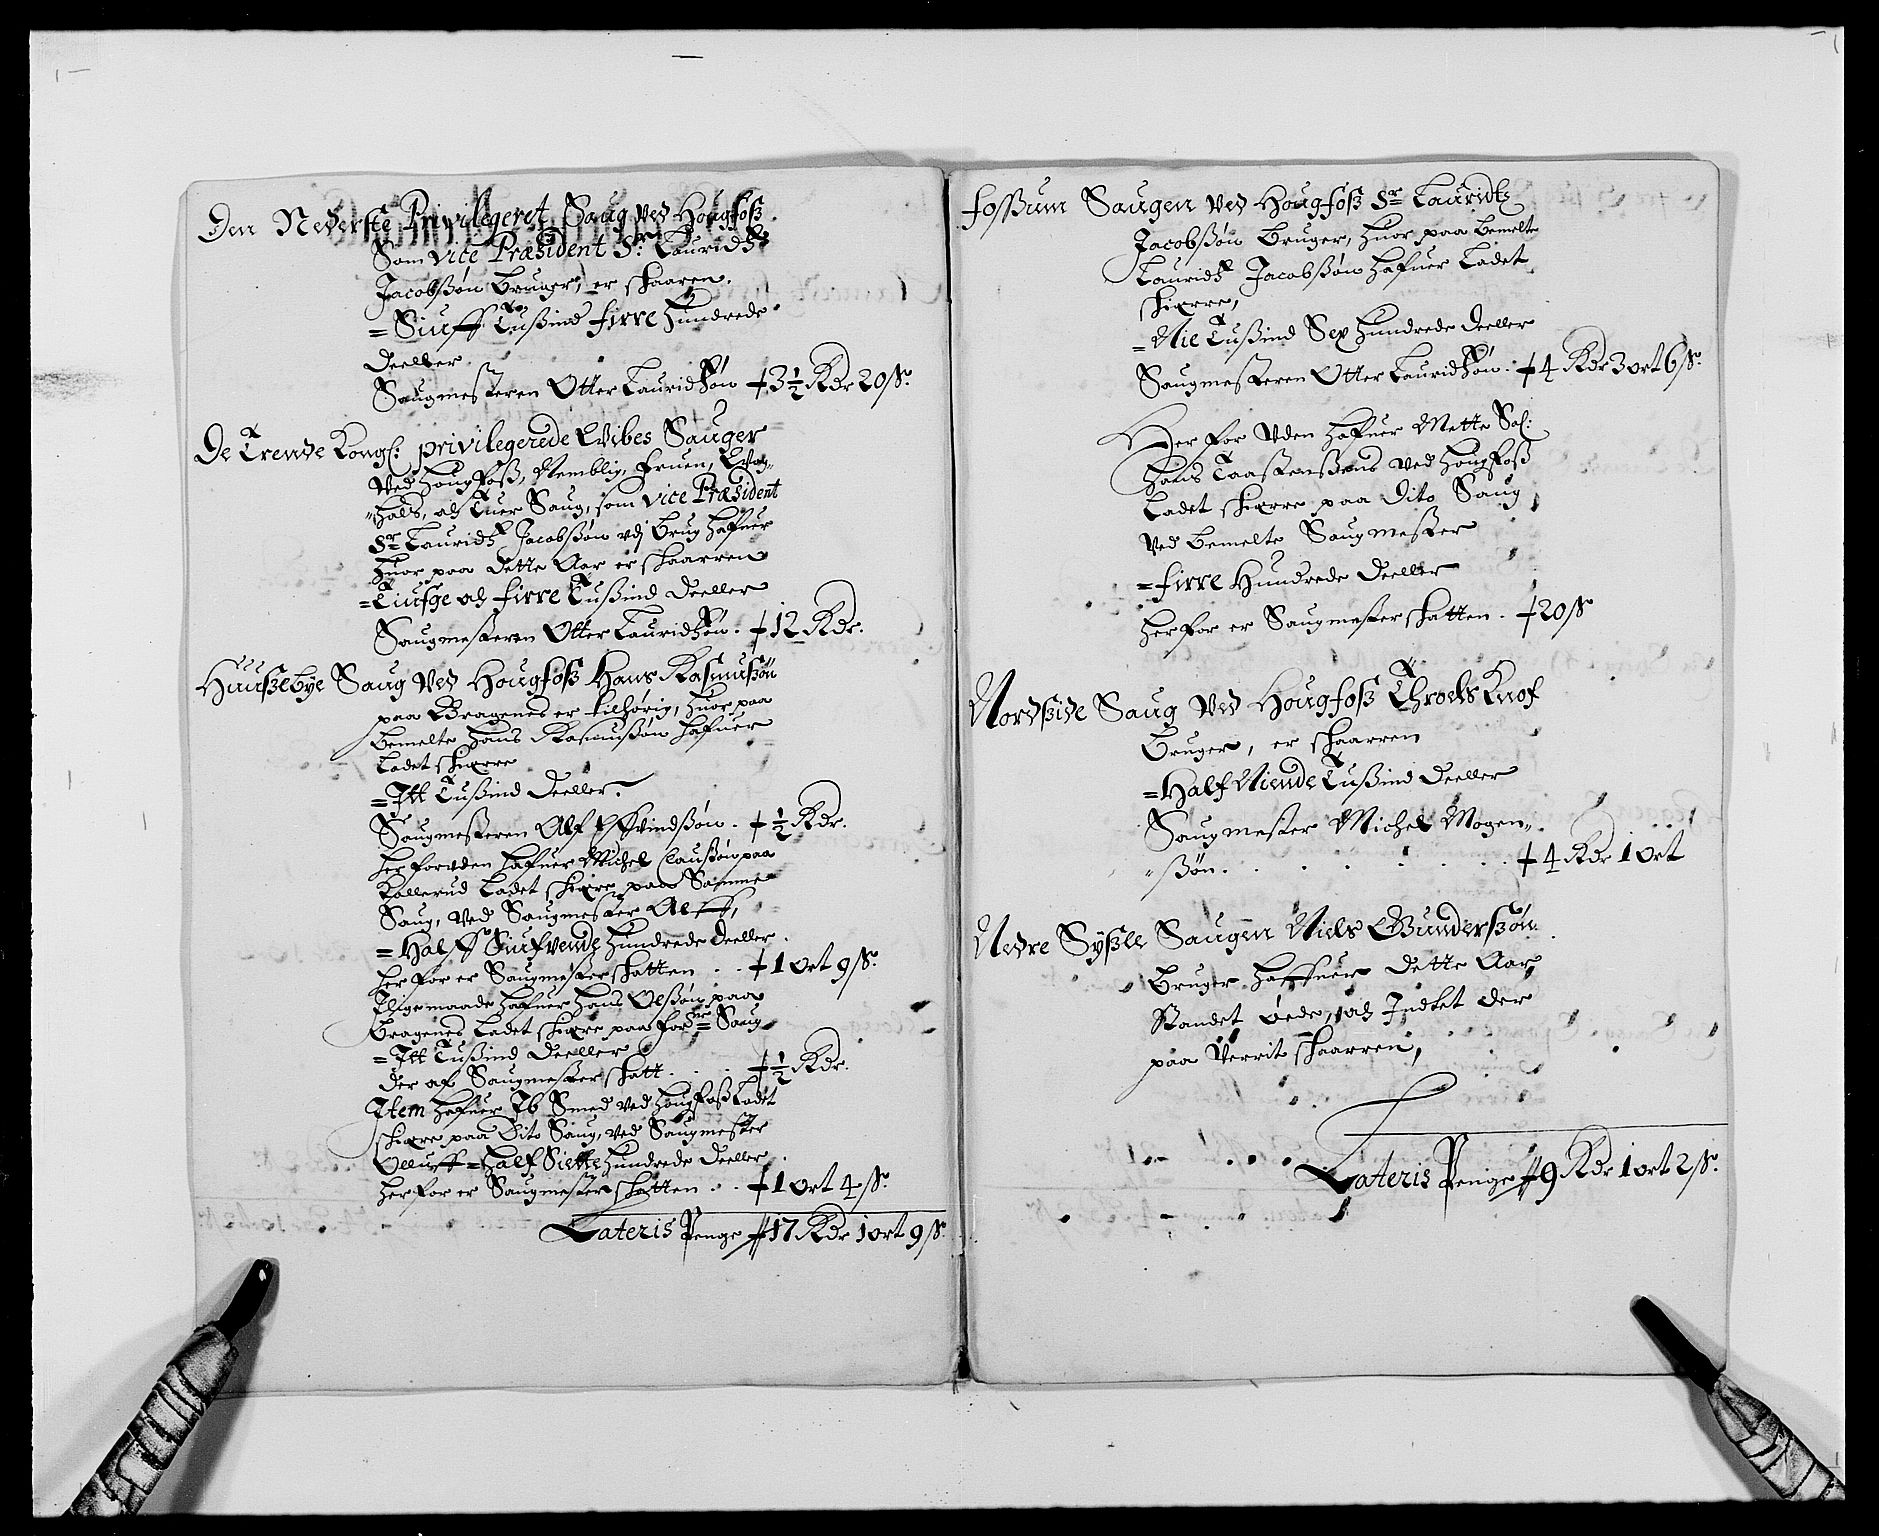 Den Nederste Privilegeret Saug ved Hougfosz
Som vice Præsident Sr. Lauridtz
Jacobszøn Bruger, er skaaren.
= Siuff Tuszind firre Hundrede
Deeller.
Saugmesteren Otter Lauridtzøn ‡ 3½ Rdr 20 s.
De Trende Kongl: privilegerede Wibes Sauger
ved Hougfosz, Nemblig, Fruen, Wog„
„hals, och Tuer Saug, som vice Præsident
Sr. Lauridtz Jacobszøn udj Brug Hafuer
Huor paa dette Aar er skaarren
= Tiufge och firre Tuszind Deeller
Saugmesteren Otter Lauridtzøn. ‡ 12 Rdr.
Huuszebye Saug ved Hougfosz Hans Rasmuszøn
paa Bragenes er tilhørig, Huor paa
bemelte Hans Rasmuszøn Hafuer
Ladet skiære
= Itt Tuszind Deeller.
Saugmesteren Alf Effvindszøn. ‡ ½ Rdr.
Her foruden Hafuer Michel Clauszøn paa
Kollerud Ladet skiære paa Samme
Saug, ved Saugmester Alff,
= Halff Siufvende Hundrede Deeller.
Her for er Saugmesterskatten .. ‡ 1 ort 9 s.
Iligemaade Hafuer Hans Olszøn paa
Bragenes Ladet skiære paa forne Saug
= Itt Tuszind Deeller
Der af Saugmesterskatt . . . ‡ ½ Rdr.
Item Hafuer Ib Smed ved Hougfosz Ladet
skiære paa Dito Saug, ved Saugmester
Olluff = Half Siette Hundrede Deeller.
Her for er Saugmesterskatten .. ‡ 1 ort 4 s.
Lateris Penge ‡ 17 Rdr 1 ort 9 s.
Foszum Saugen ved Hougfosz Sr. Lauridtz
Jacobszøn Bruger, Huor paa bemelte
Lauridtz Jacobszøn Hafuer Ladet
skiære,
= Nie Tuszind Sex Hundrede Deeller
Saugmesteren Otter Lauridtzøn . ‡ 4 Rdr 3 ort 6 s.
Her for uden Hafuer Mette Sal:
Hans Taastenszens ved Hougfosz
Ladet skiære paa Dito Saug
ved bemelte Saugmester
= firre Hundrede Deeller
Her for er Saugmesterskatten . ‡ 20 s
Nordszide Saug ved Hougfosz Throels Knof
Bruger, er skaarren
= Half Niende Tuszind Deeller
Saugmester Michel Mogen„
„szøn . . . . . . . ‡ 4 Rdr 1 ort
Nedre Syszle Saugen Niels Gunderszøn
Bruger Haffuer dette Aar
Standet øede, och Indtet der
paa verrit skaarren,
Lateris Penge ‡ 9 Rdr 1 ort 2 s.